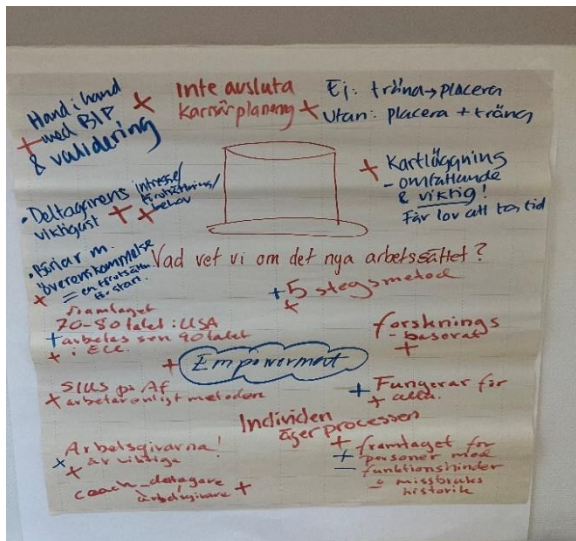 Hand i hand
med BIP
& validering
Inte avsluta
karriärplanering
Ej: träna → placera
Utan: placera + träna
Kartläggning
- omfattande
& viktig!
Får lov att ta tid
• Deltagarens
viktigast
intresse/
behov
• Börjar m.
överenskommelse
= en
Vad vet vi om det nya arbetssättet?
+ 5 stegsmetod
framtaget
70-80 talet i USA
+ arbetas sen 90 talet
+ i
forsknings
- baserat
+ Empowerment
SIUS på Af
+ arbetar enligt metoden
+ Fungerar för
+ alla.
Individen
äger processen
Arbetsgivarna!
är viktiga
+
coach - deltagare
arbetsgivare +
+ framtaget för
personer med
funktionshinder
missbruks
historik